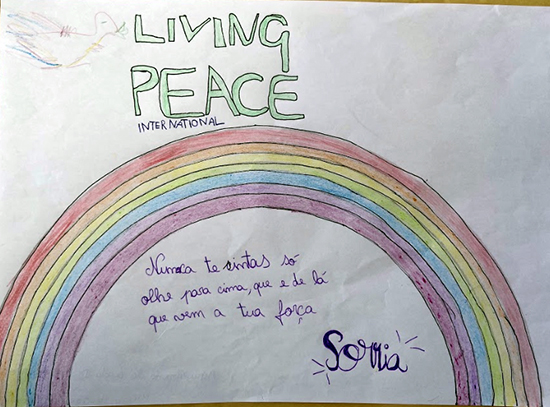 LIVING
PEACE
INTERNATIONAL
Nunca te sintas só
olhe para cima, que e de lá
que vem a tua força
Sorria